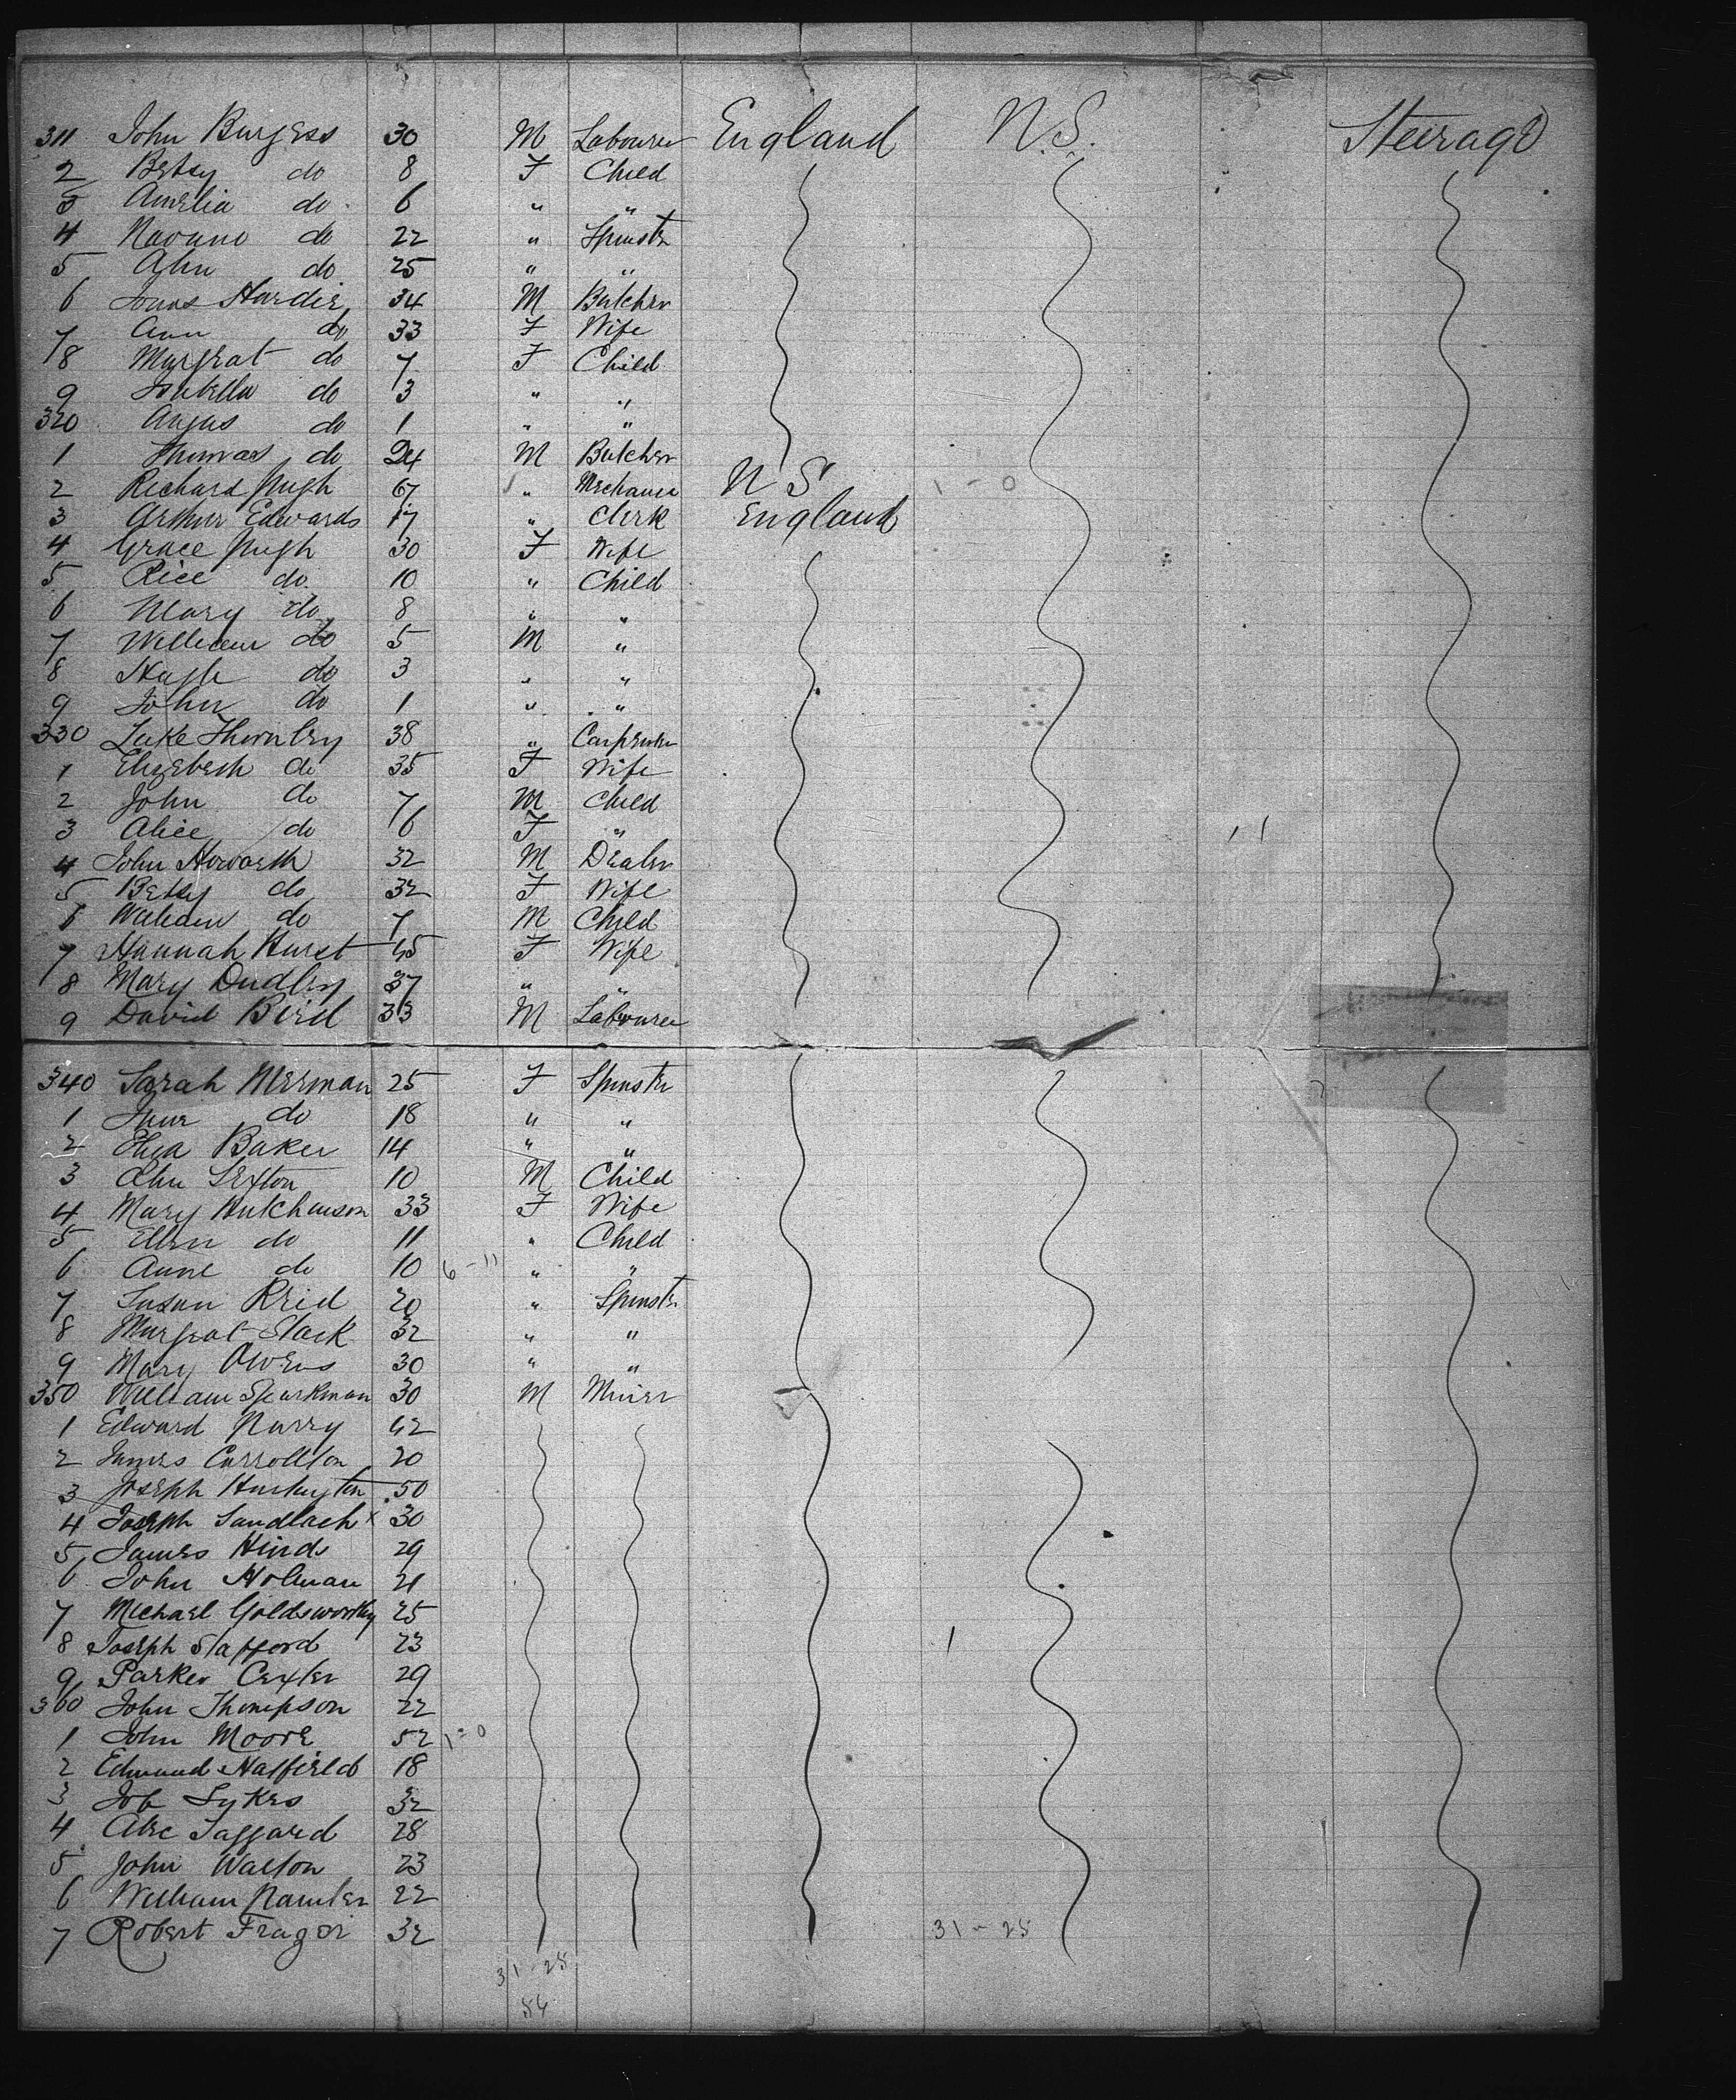 311 John Burgess 30 M Labourer England N.S. Steirage
2 Betsy do 8 F Child
3 Amelia do 6 " "
4 do 22 " Spinstr
5 Ahn do 25 " "
6 Jonas Hardie 34 M Butcher
7 Ann do 33 F Wife
8 Margrat do 7 F Child
9 Isabella do 3 " "
320 Angus do 1 " "
1 Thomas do 24 M Butcher
2 Richard Pugh 67 " Mechanic N S 1 - 0
3 Arthur Edwards 17 " Clerk England
4 Grace Pugh 30 F Wife
5 Rice do 10 " Child
6 Mary do 8 " "
7 William do 5 M "
8 Hugh do 3 " "
9 John do 1 " "
330 Luke Thornley 38 " Carpenter
1 Elizebeth do 35 F Wife
2 John do 7 M Child
3 Alice do 6 F "
4 John Howarth 32 M Dealer
5 Betsy do 32 F Wife
6 William do 7 M Child
7 Hannah Hurst 45 F Wife
8 Mary Dudley 37 " "
9 David Bird 33 M Labourer
340 Sarah Merman 25 F Spinstr
1 do 18 " "
2 Eliza Baker 14 " "
3 Ahn Sexton 10 M Child
4 Mary Hutchinson 33 F Wife
5 Ellen do 11 " Child
6 Anne do 10 6 - 11 " "
7 Susan Reid 20 " Spinstr
8 Margrat Slack 32 " "
9 Mary Owens 30 " "
350 William Sparkman 30 M Miner
1 Edward Parry 42
2 James Carrollton 20
3 Joseph 50
4 Joseph Sandlach x 30
5 James Hinds 29
6 John Holman 21
7 Michael Goldsworthy 25
8 Joseph Stafford 23
9 Parker 29
360 John Thompson 22
1 John Moore 52 1 - 0
2 Edmund Hatfield 18
3 Job Sykes 32
4 Abe Taggard 28
5 John Walton 23
6 William 22
7 Robert Frager 32 31 - 25
31 - 25
54